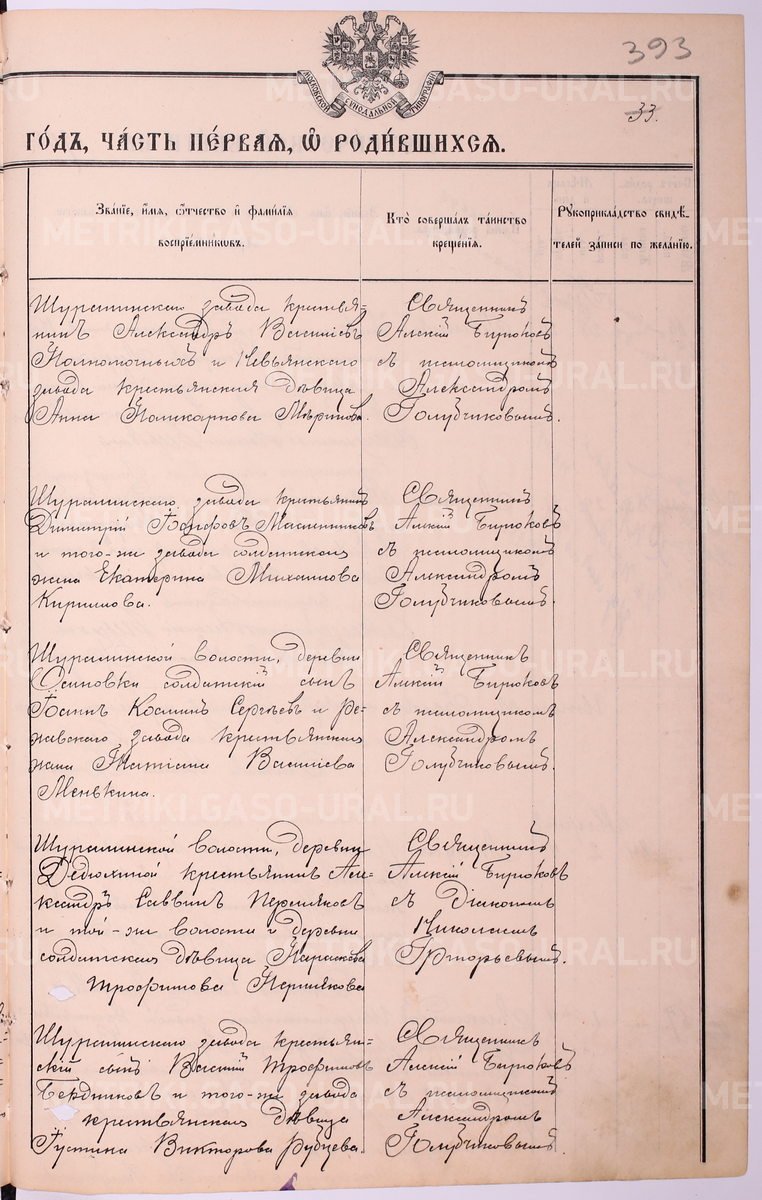 393
33.
МОСКОВСКОЙ СѴНОДАЛЬНОЙ ТИПОГРАФІИ
METRIKI.GASO-URAL.RU
ГО́ДЪ, ЧА́СТЬ ПЕ́РВАЯ, Ѽ РОДИ́ВШИХСЯ.
Зва́ніе, и҆́мя, ѻ҆́тчество и҆ фами́лія
воспрїе́мниковъ.
Кто̀ соверша́лъ та́инство
креще́нія.
Рꙋкоприкла́дство свидѣ́-
телей за́писи по жела́нію.
Шуралинскаго завода крестья-
нинъ Александръ Василіевъ
Полномочныхъ и Невьянскаго
завода крестьянская дѣвица
Анна Поликарпова Мѣринова.
Священникъ
Алексій Бирюковъ
съ псаломщикомъ
Александромъ
Голубчиковымъ.
Шуралинскаго завода крестьянинъ
Димитрій Іосифовъ Масленниковъ
и того-же завода солдатская
жена Екатерина Михаилова
Кириллова.
Священникъ
Алексій Бирюковъ
съ псаломщикомъ
Александромъ
Голубчиковымъ.
Шуралинской волости, деревни
Осиновки солдатскій сынъ
Іоаннъ Космин Сергѣевъ и Ре-
жевскаго завода крестьянская
жена Татіана Василіева
Менькина.
Священникъ
Алексій Бирюковъ
съ псаломщикомъ
Александромъ
Голубчиковымъ.
Шуралинской волости, деревни
Дедюхиной крестьянинъ Але-
ксандръ Саввинъ Пермяковъ
и той-же волости и деревни
солдатская дѣвица Параскева
Трофимова Пермякова
Священникъ
Алексій Бирюковъ
съ Діакономъ
Николаемъ
Григорьевымъ.
Шуралинскаго завода крестьян-
скій сынъ Василій Трофимовъ
Бердниковъ и того-же завода
крестьянская дѣвица
Іустина Викторова Рубцева.
Священникъ
Алексій Бирюковъ
съ псаломщикомъ
Александромъ
Голубчиковымъ.